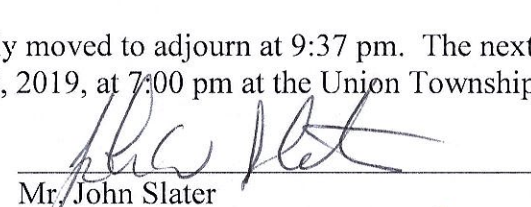 y moved to adjourn at 9:37 pm. The next
, 2019, at 7:00 pm at the Union Township
John Slater
Mr. John Slater